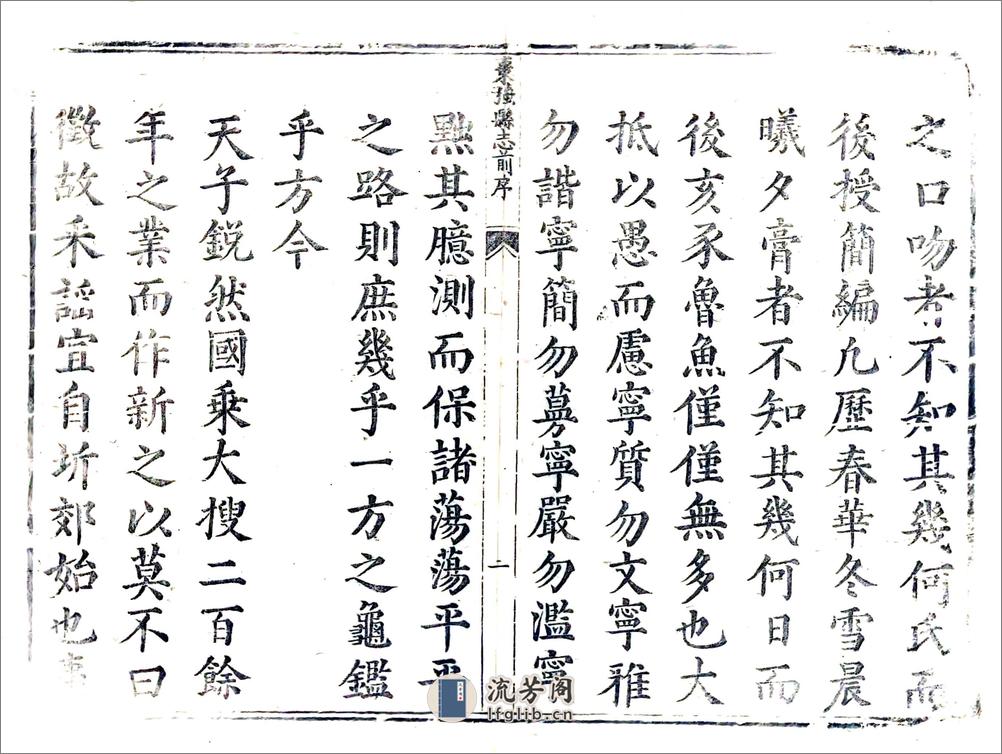 之口吻者不知其幾何氏而
後授簡編凡歷春華冬雪晨
曦夕膏者不知其幾何日而
後亥豕魯魚僅僅無多也大
抵以愚而慮寧質勿文寧雅
勿諧寧簡勿蒡寧嚴勿濫寧
棗強縣志前序
二
點其臆測而保諸蕩蕩平平
之路則庶幾乎一方之龜鑑
乎方今
天子鋭然國乘大搜二百餘
年之業而作新之以莫不曰
徵故采謡宜自圻郊始也
流芳阁
lfglib.cn